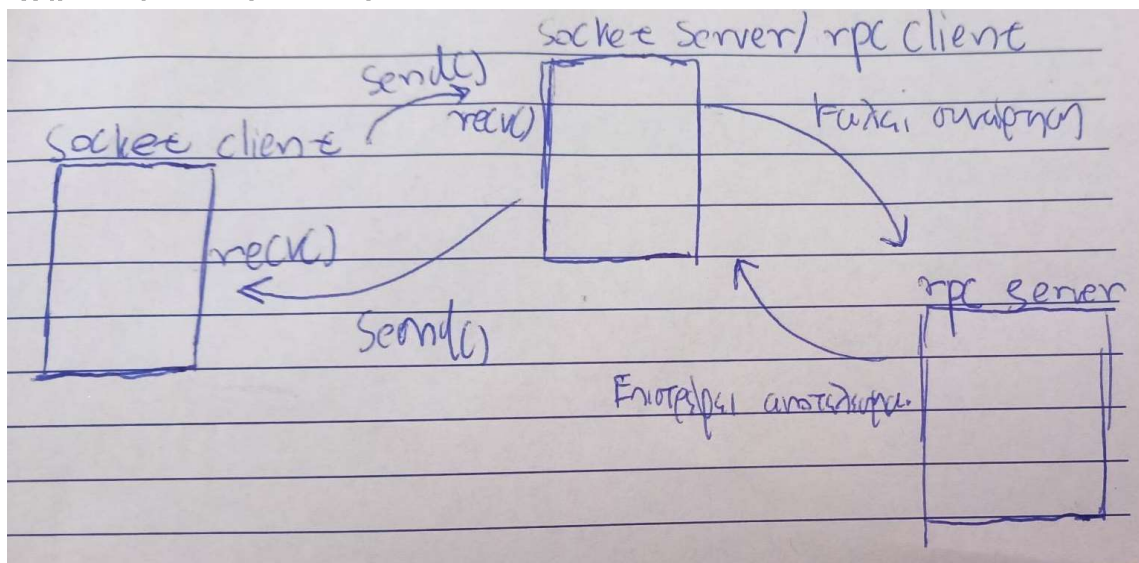 Socket Server/ rpc client
send()
recv()
Καλεί συνάρτηση
Socket client
recv()
send()
rpc server
Επιστρέφει αποτέλεσμα.